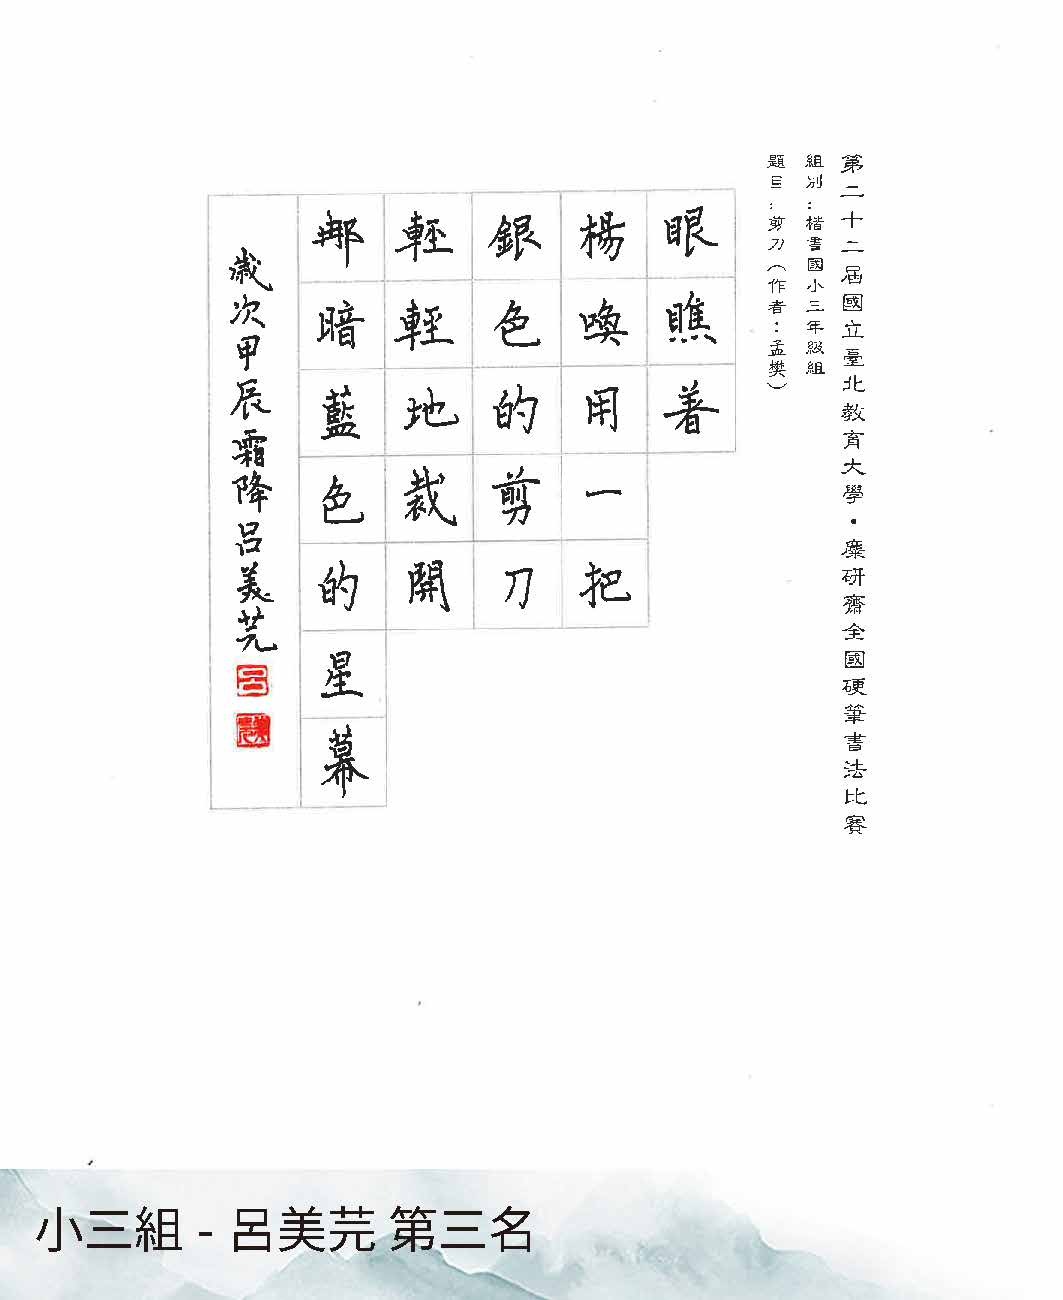 第二十二屆國立臺北教育大學・麋研齋全國硬筆書法比賽
組別：楷書國小三年級組
題目：剪刀（作者：孟樊）
眼瞧着
楊喚用一把
銀色的剪刀
輕輕地裁開
那暗藍色的星幕
歲次甲辰霜降呂美芫
小三組 - 呂美芫 第三名